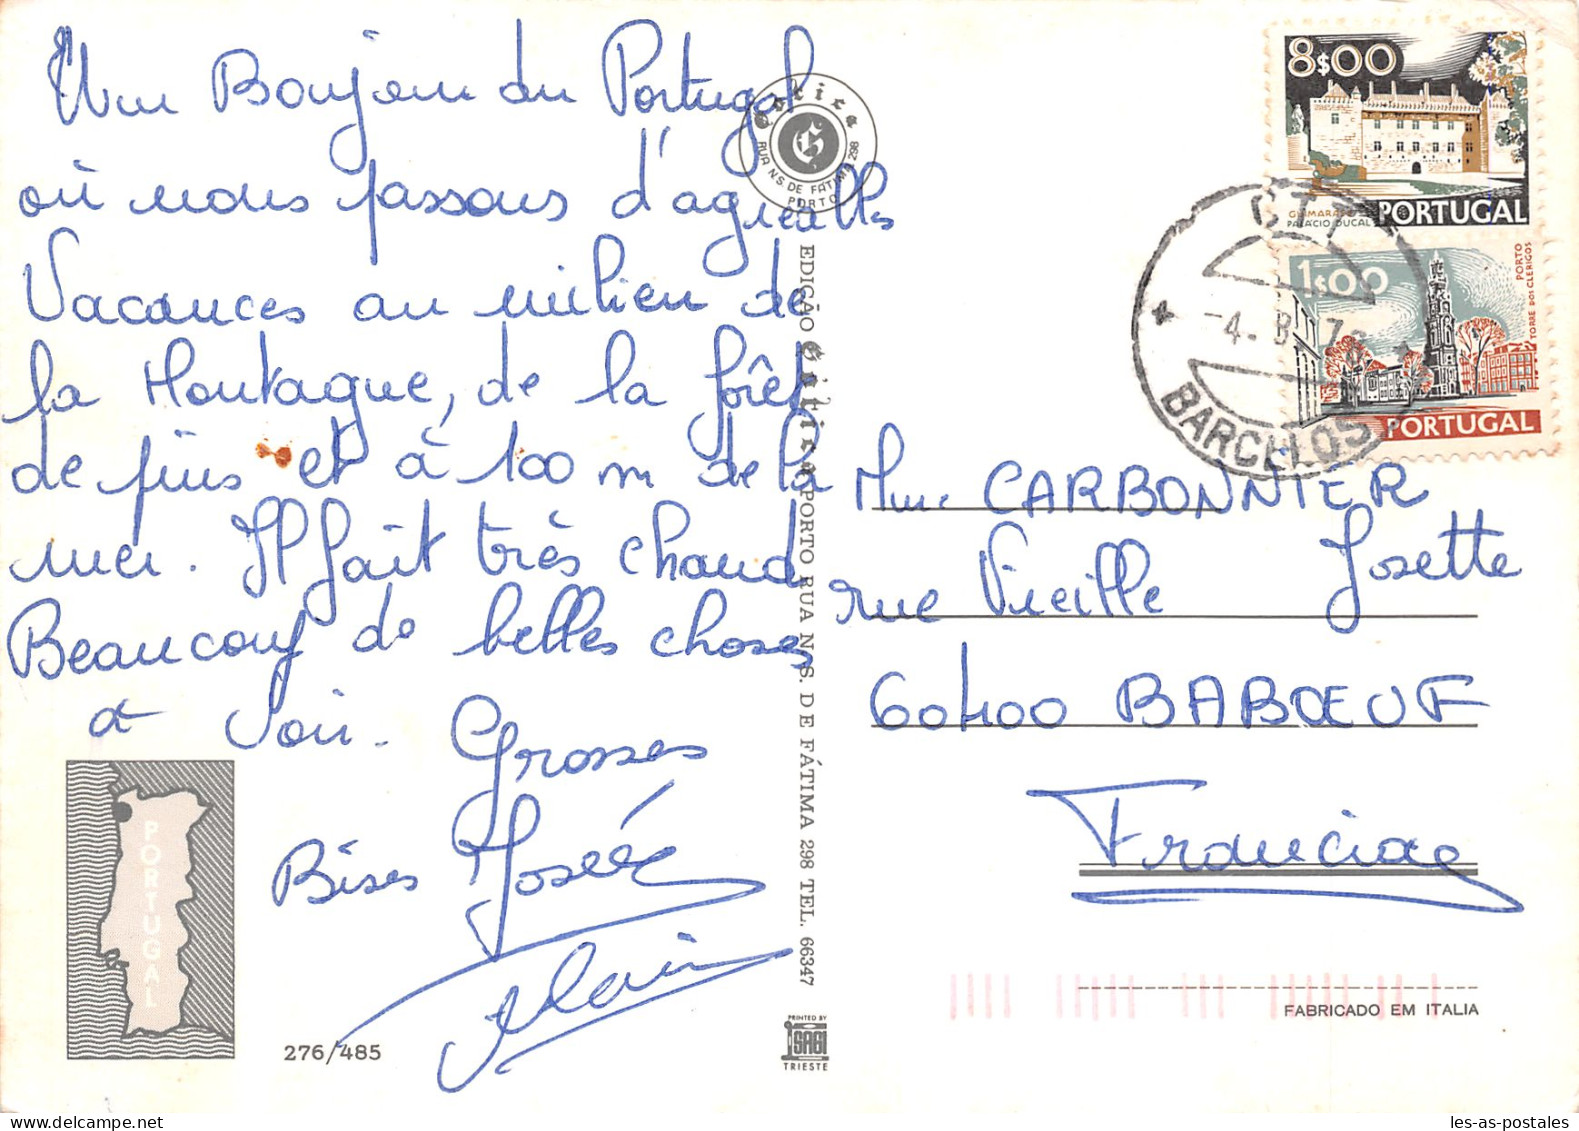 Un Bonjour du Portugal
où nous passons d'agréables
Vacances au milieu de
la Montagne, de la forêt
de pins et à 100 m de la
mer. Il fait très chaud
Beaucoup de belles choses
à voir. Grosses
Bises Josée
Alain
276/485
PORTUGAL
Gótica
RUA N.S. DE FÁTIMA 298
PORTO
EDIÇÃO Gótica PORTO RUA N. S. DE FÁTIMA 298 TEL. 66347
PRINTED BY
SAGI
TRIESTE
8$00
GUIMARÃES
PALÁCIO DUCAL
PORTUGAL
1$00
PORTO
TORRE DOS CLERIGOS
PORTUGAL
CTT
-4. 8. 76
BARCELOS
Mme CARBONNIER
Josette
rue Vieille
60400 BABŒUF
FABRICADO EM ITALIA
les-as-postales